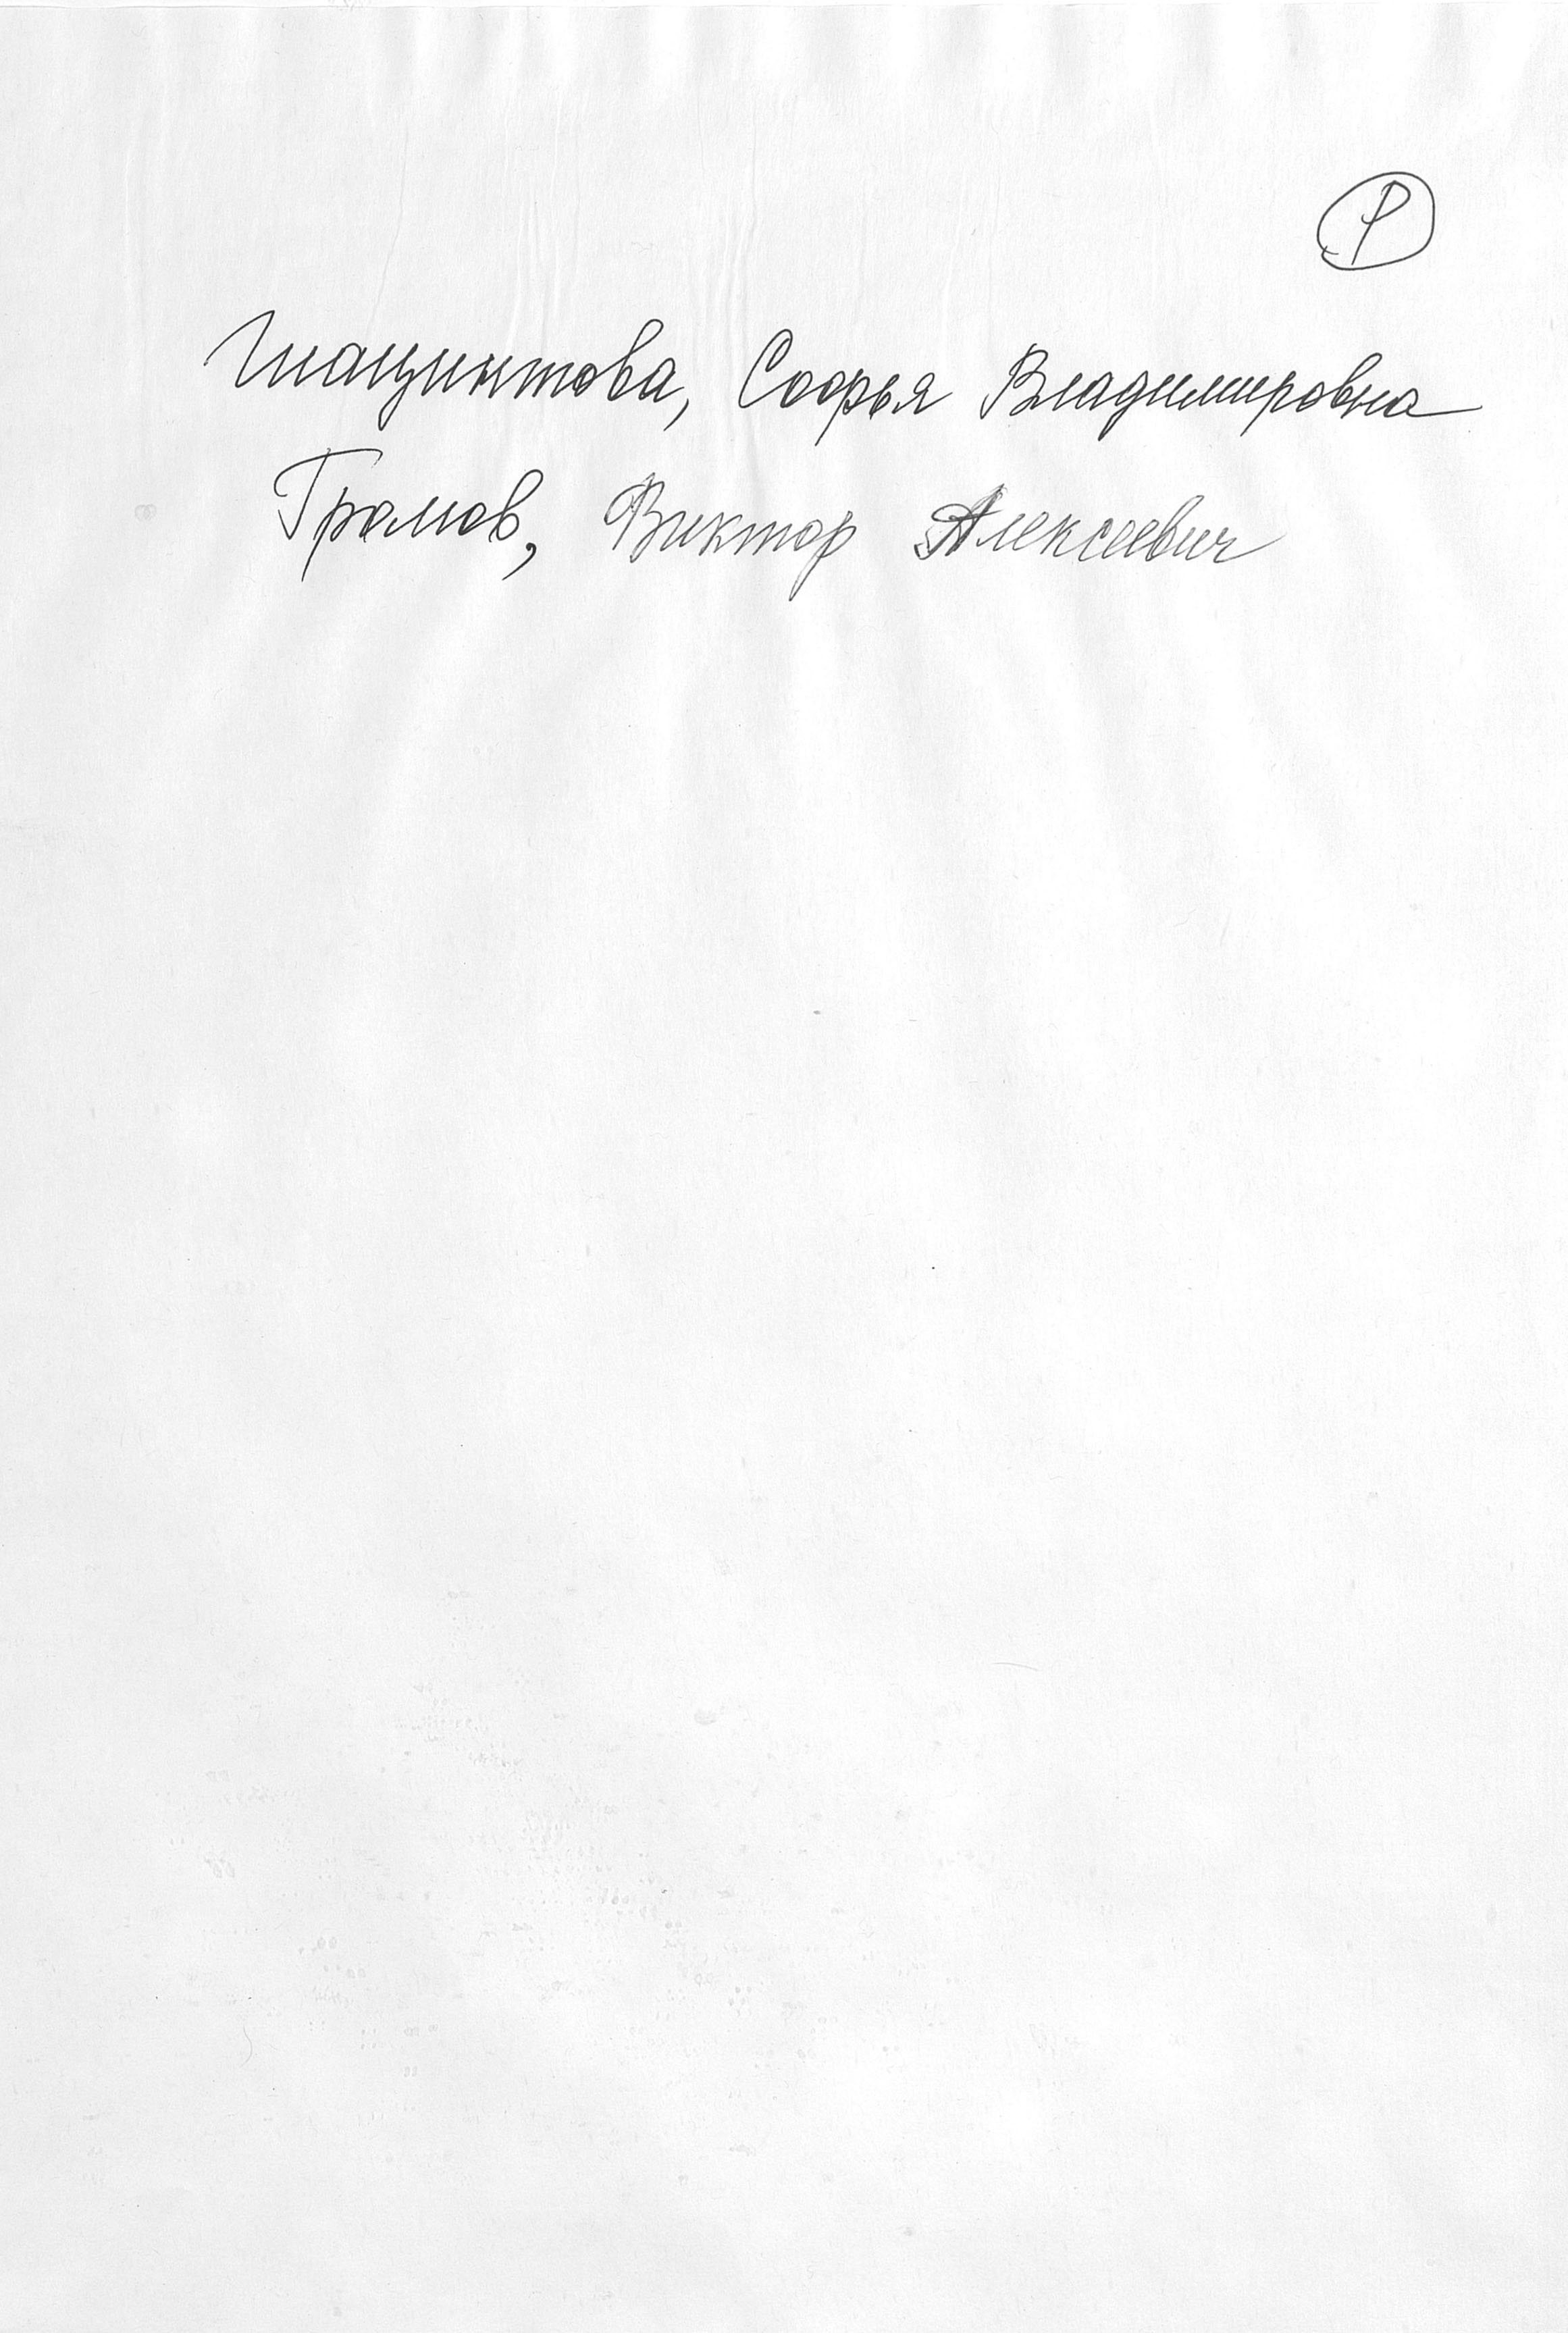 Р
Гиацинтова, Софья Владимировна
Громов, Виктор Алексеевич